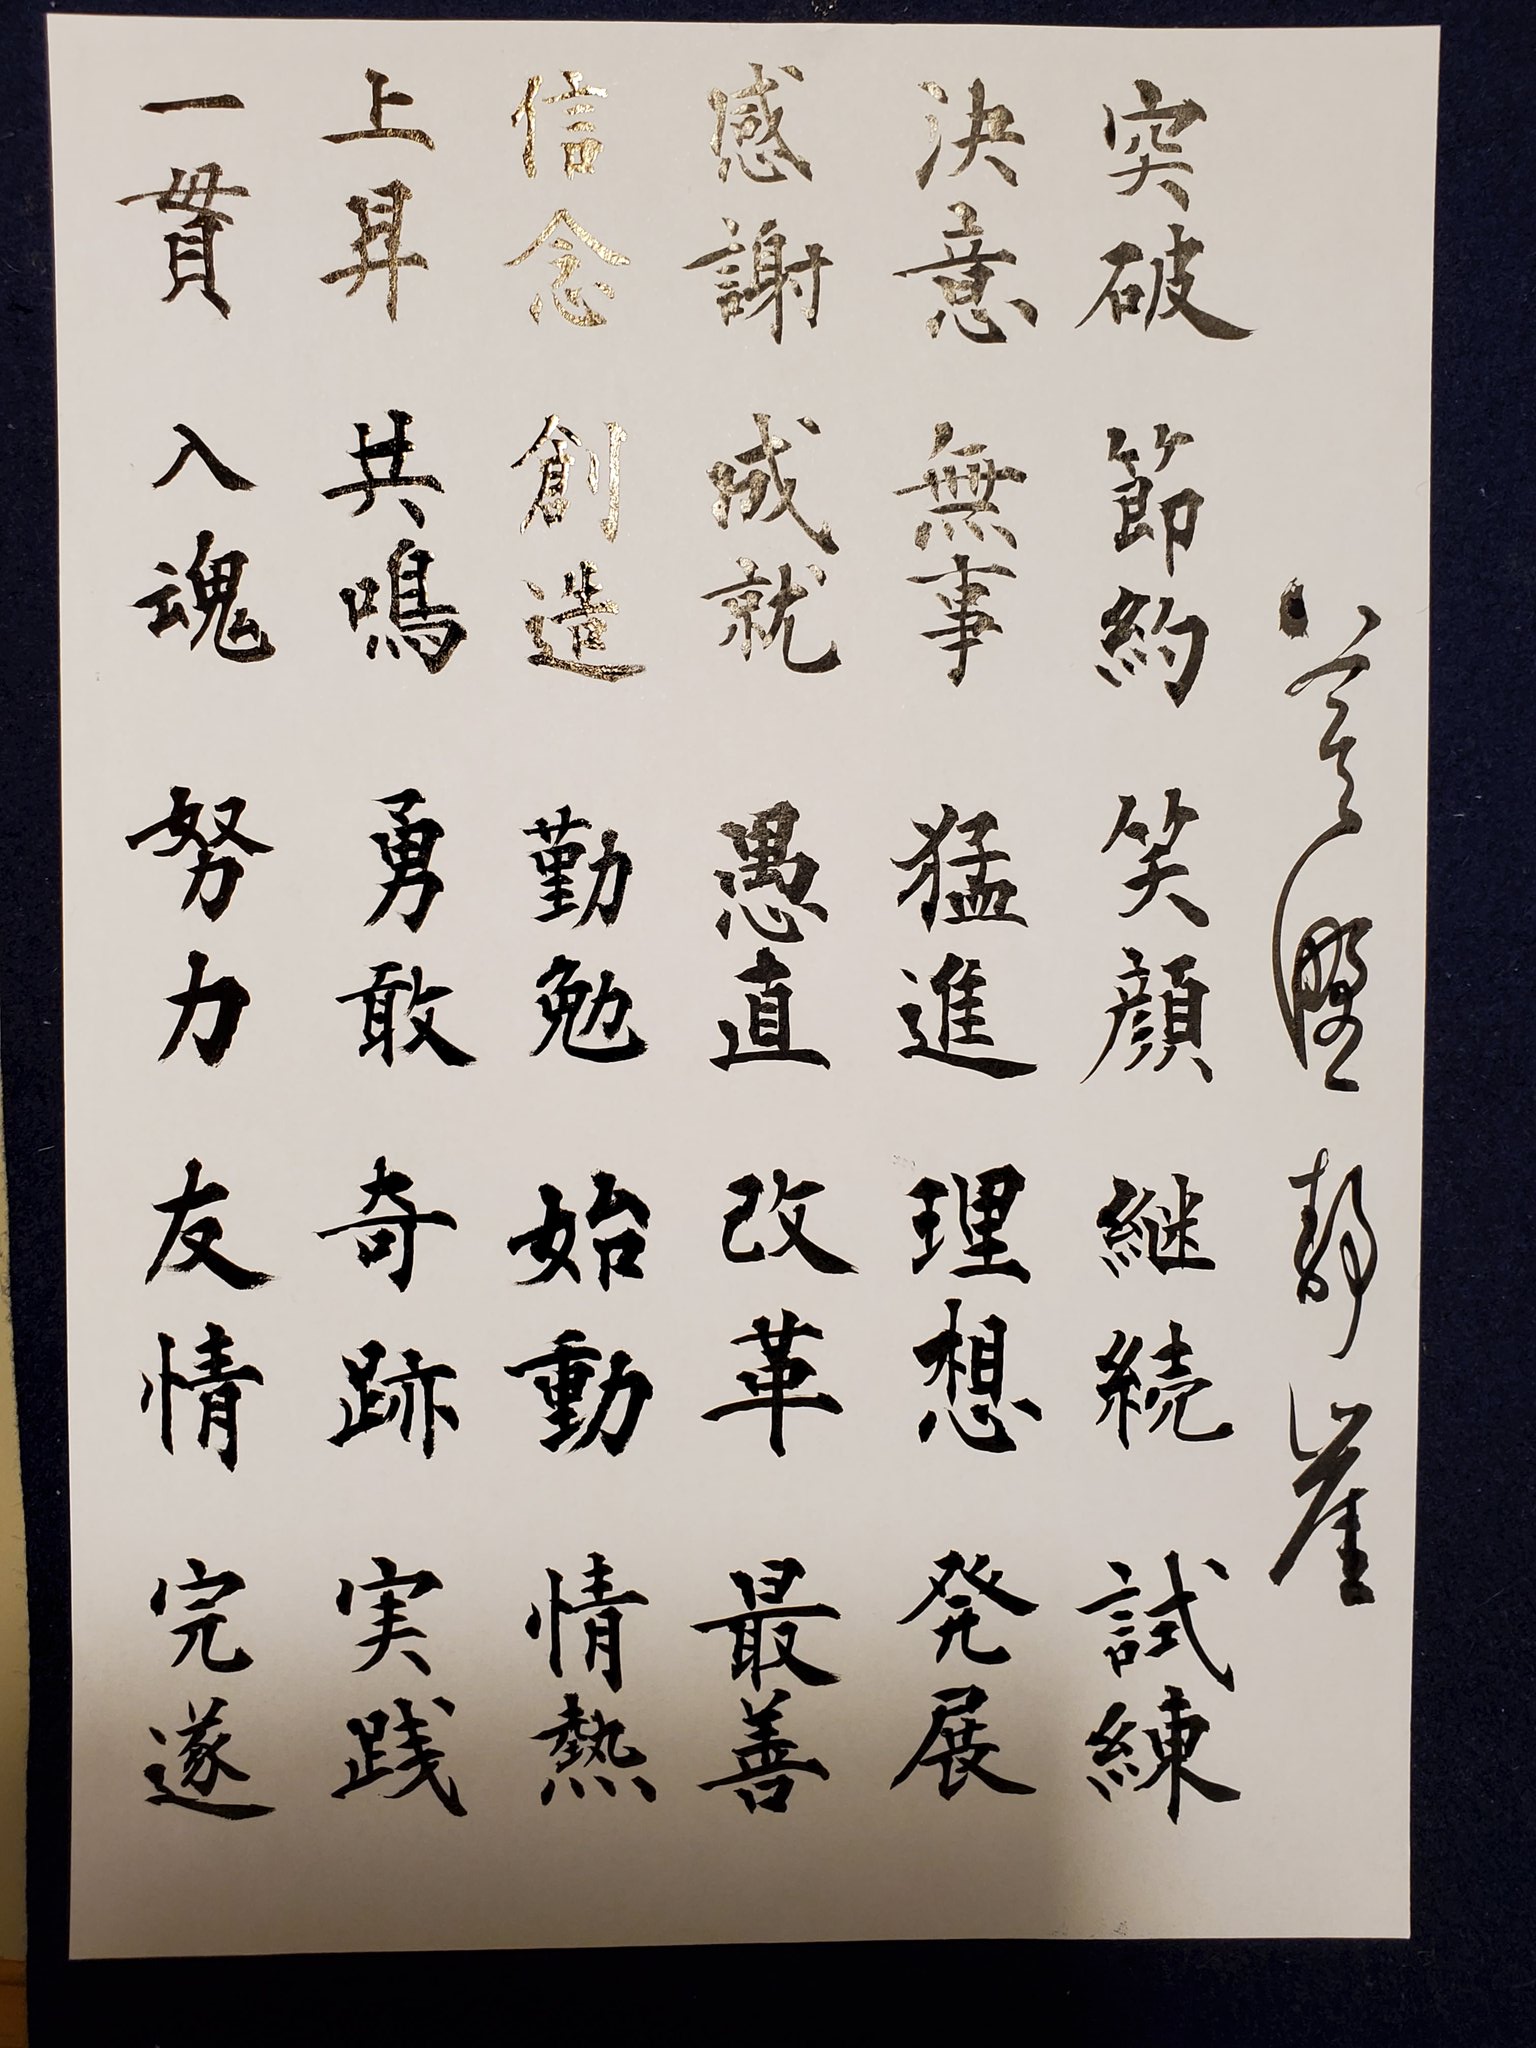 静崖
突破 節約 笑顔 継続 試練
決意 無事 猛進 理想 発展
感謝 成就 愚直 改革 最善
信念 創造 勤勉 始動 情熱
上昇 共鳴 勇敢 奇跡 実践
一貫 入魂 努力 友情 完遂